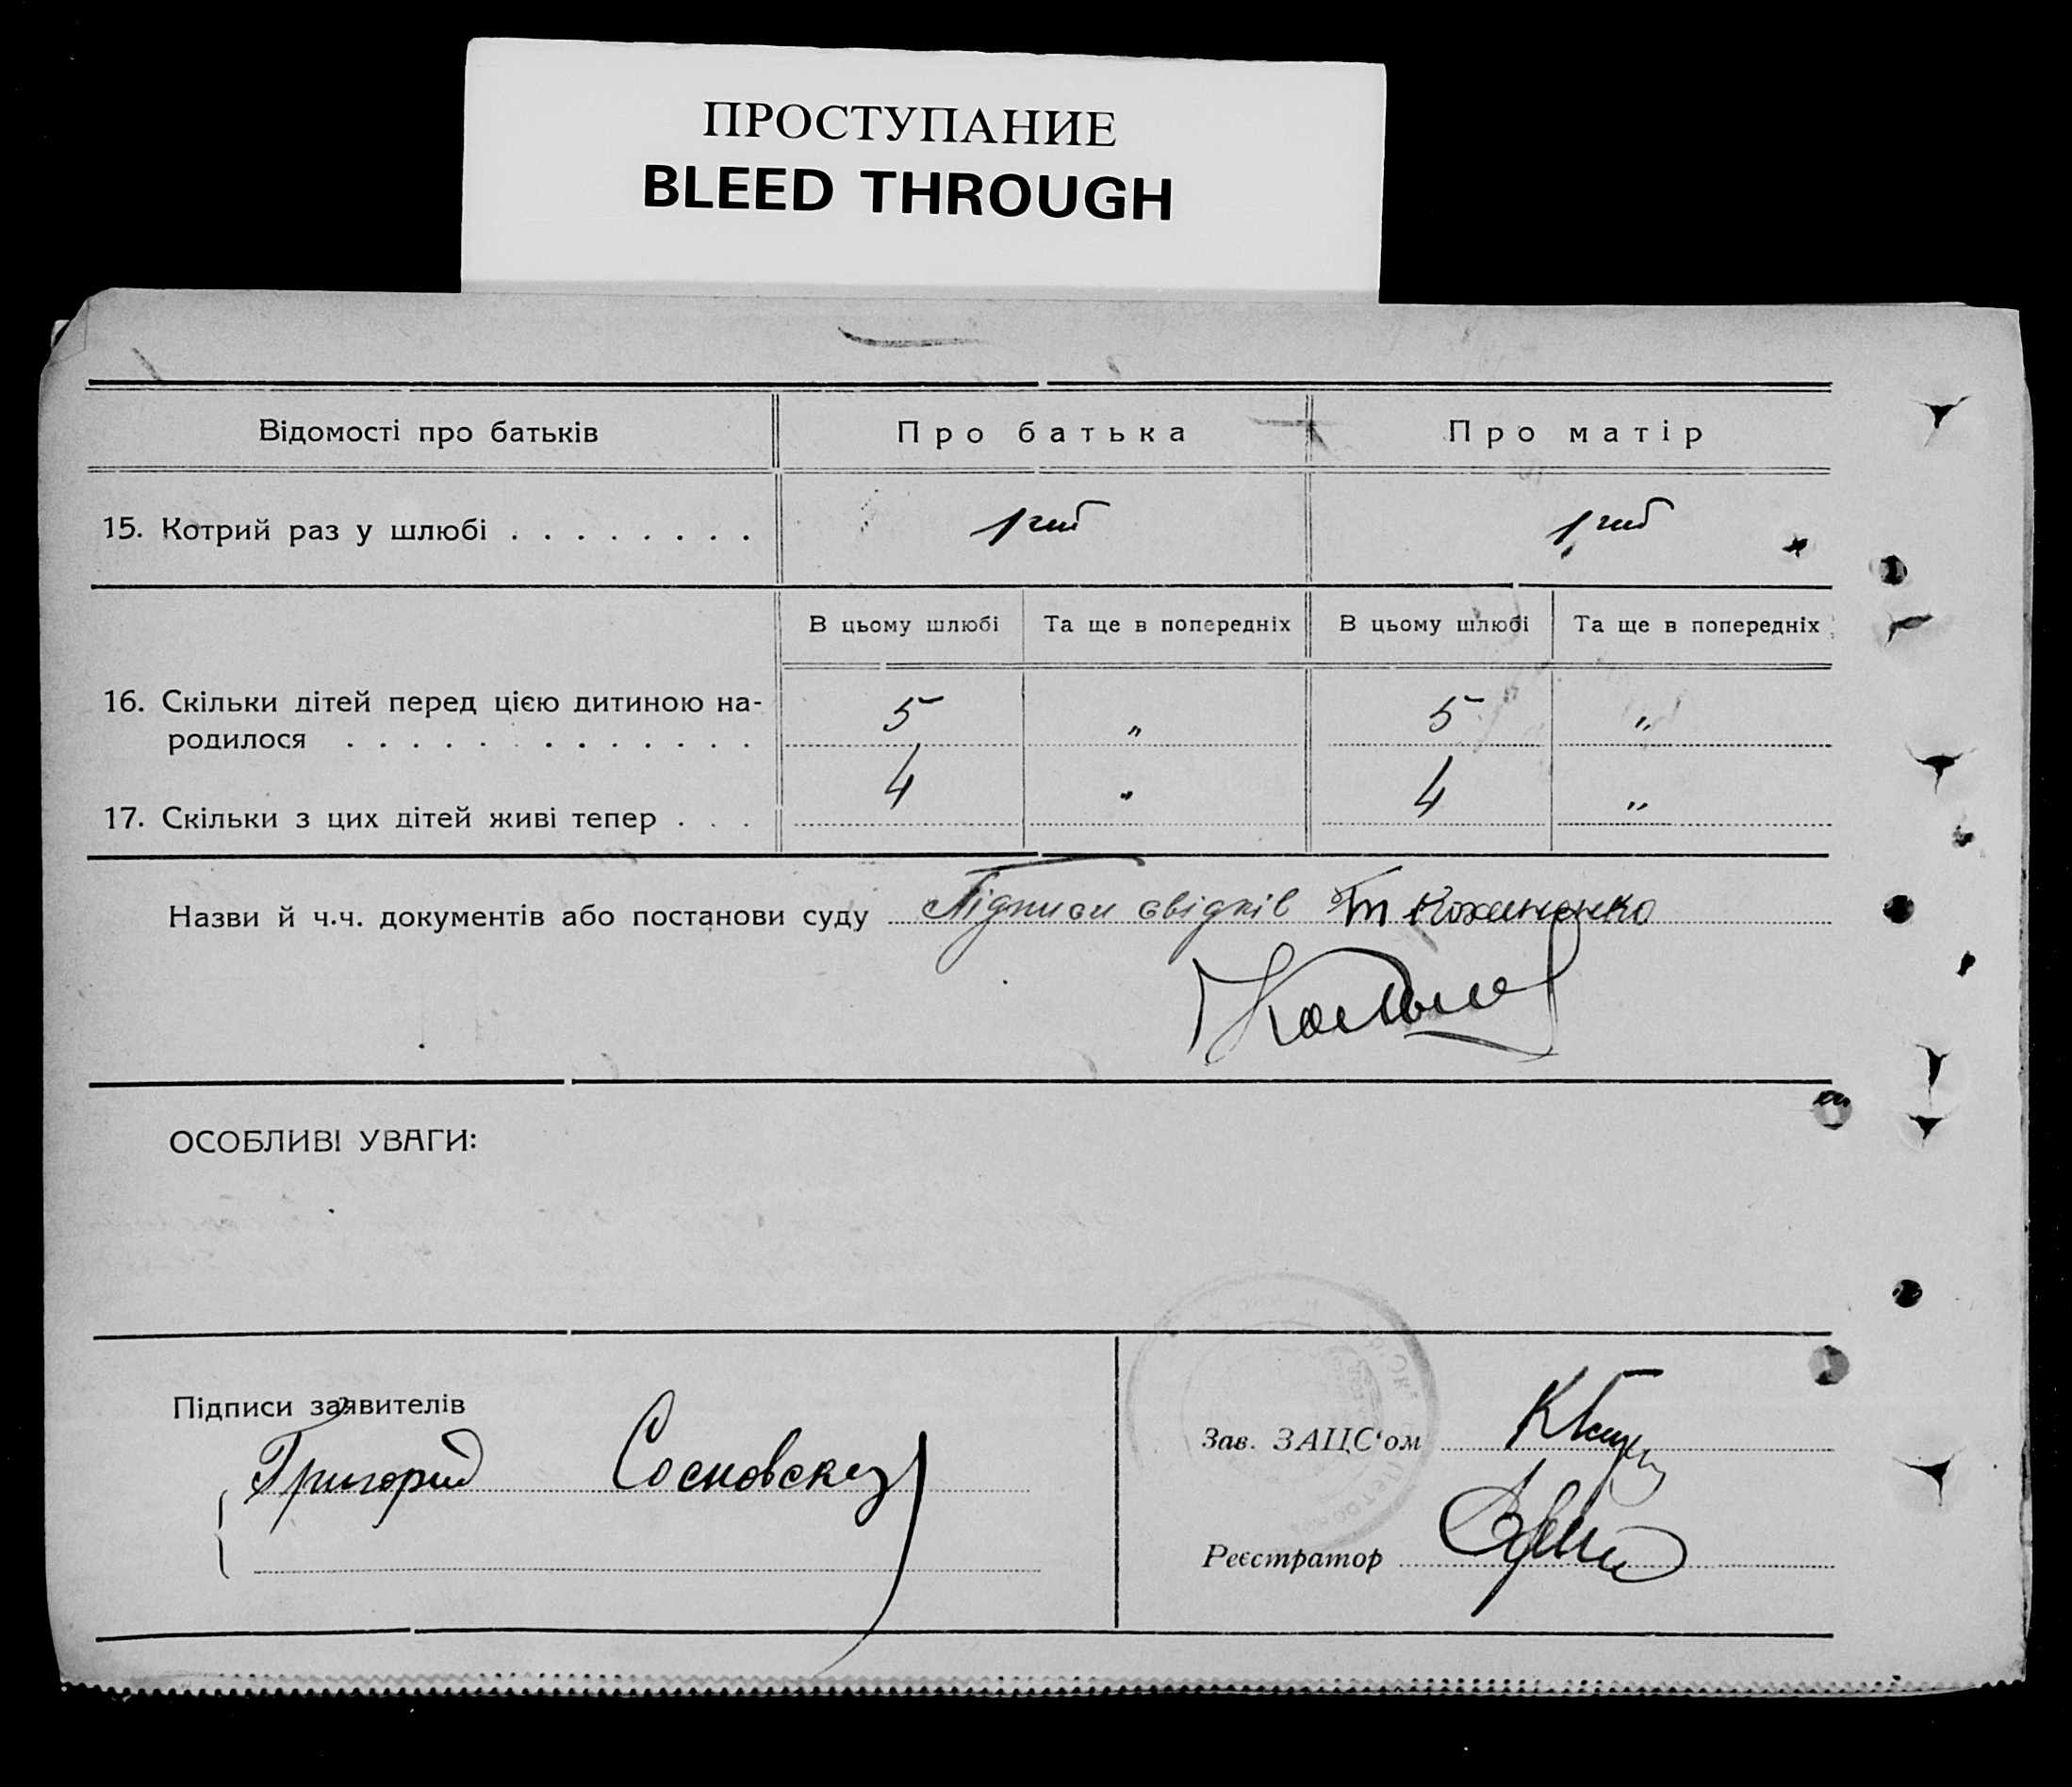 ПРОСТУПАНИЕ
BLEED THROUGH
Відомості про батьків Про батька Про матір
15. Котрий раз у шлюбі . . . . . . . . 1 1
В цьому шлюбі Та ще в попередніх В цьому шлюбі Та ще в попередніх
16. Скільки дітей перед цією дитиною на-
родилося . . . . . . . . . . . . . 5 " 5 "
17. Скільки з цих дітей живі тепер . . . 4 " 4 "
Назви й ч.ч. документів або постанови суду Підписи свідків
ОСОБЛИВІ УВАГИ:
Підписи заявителів
Григорий Сосновский
Зав. ЗАЦС'ом
Реєстратор